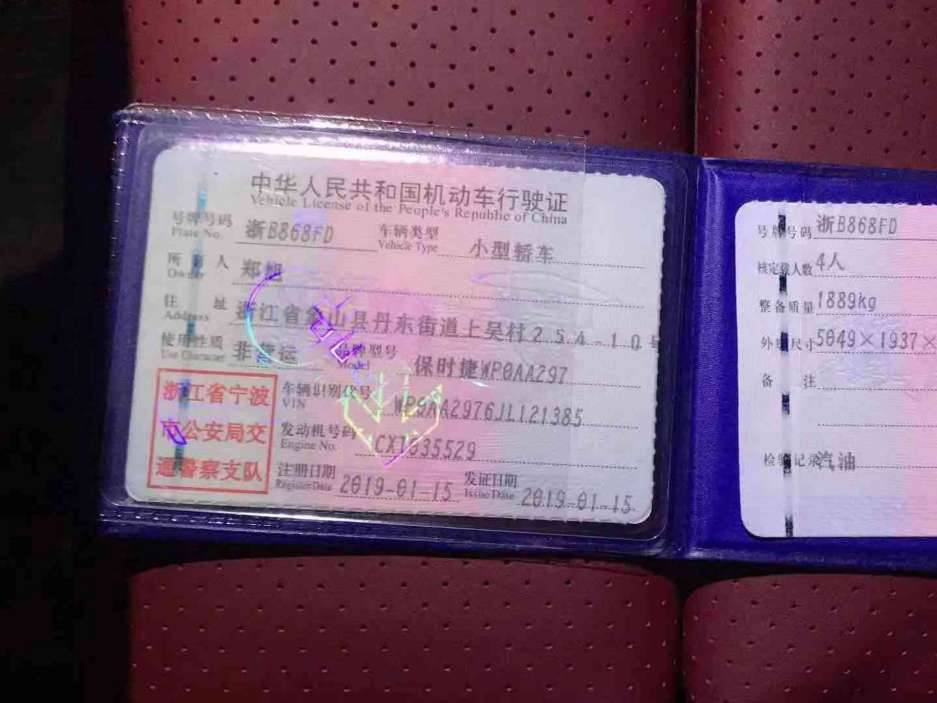 中华人民共和国机动车行驶证
Vehicle License of the People's Republic of China
号牌号码 浙B868FD 车辆类型 小型轿车
Plate No. Vehicle Type
所有人 郑
Owner
住址 浙江省象山县丹东街道上吴村254-10号
Address
使用性质 非营运 品牌型号 保时捷WP0AA297
Use Character Model
浙江省宁波
市公安局交
通警察支队
车辆识别代号 WP0AA2976JL121385
VIN
发动机号码
Engine No.
注册日期 2019-01-15 发证日期 2019-01-15
Register Date Issue Date
号牌号码 浙B868FD
核定载人数 4人
整备质量 1889kg
外廓尺寸 5049×1937×
备注
检验记录 汽油